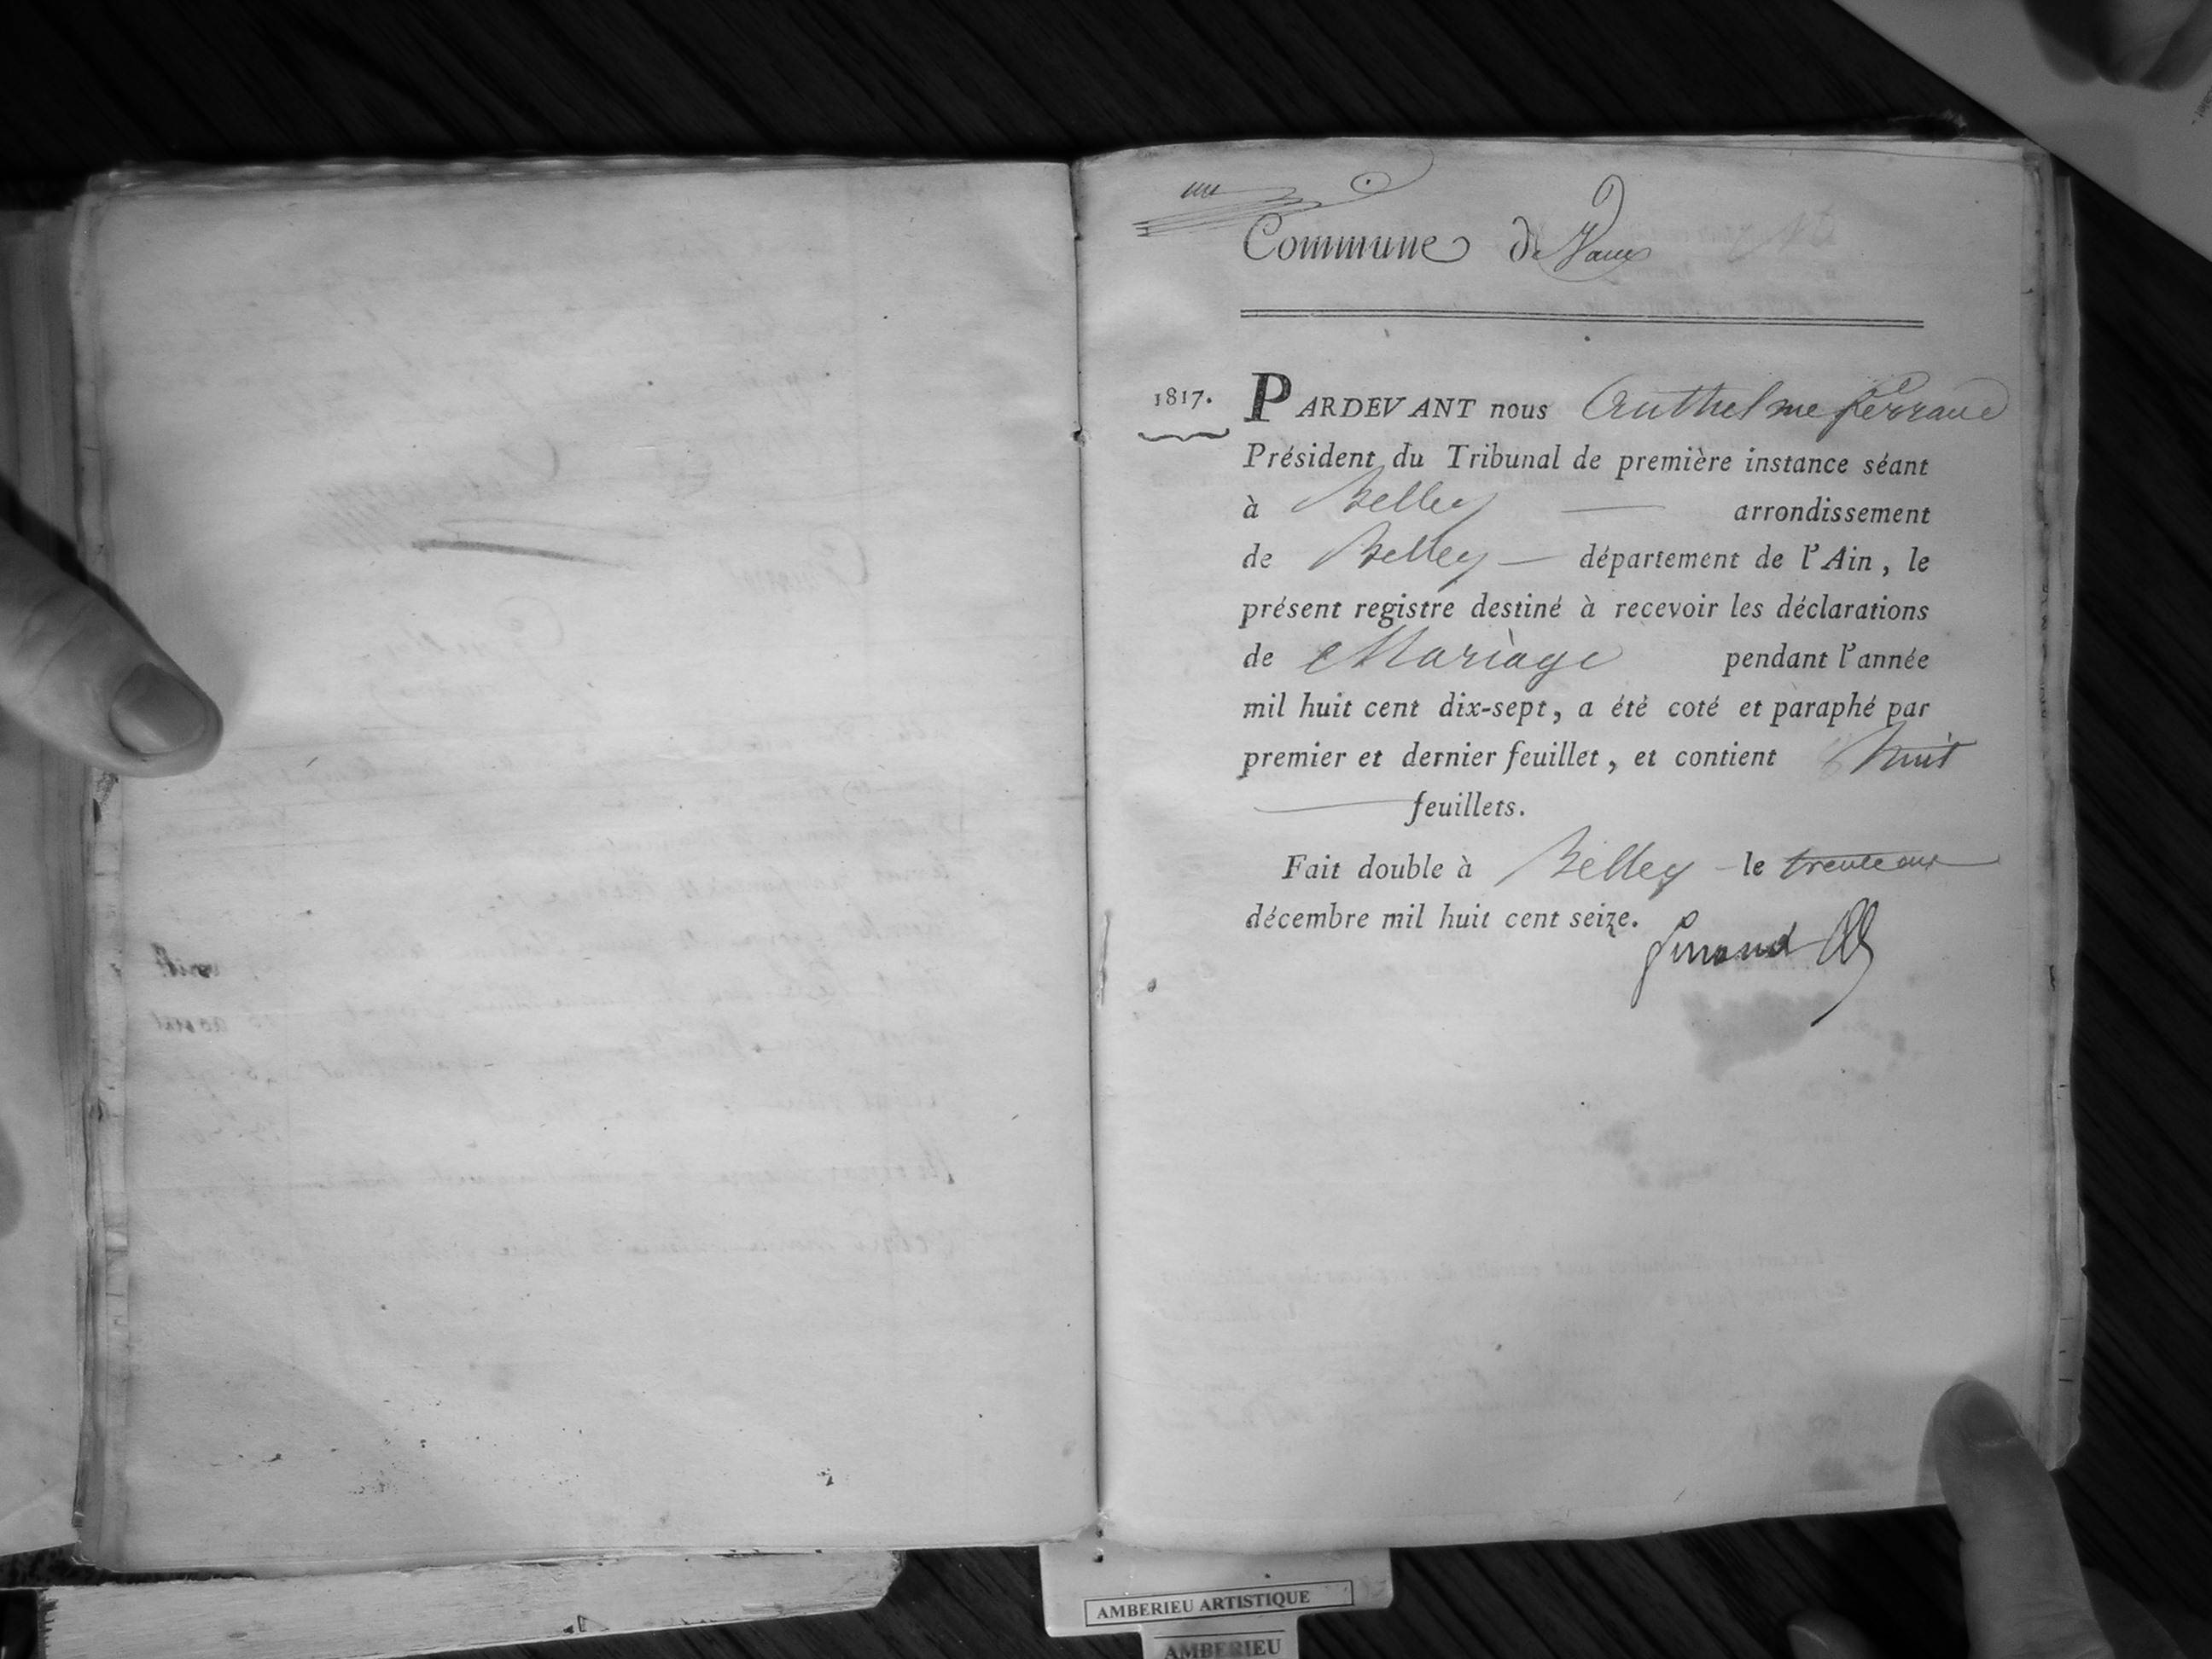 un
Commune de Vaux
1817. PARDEVANT nous Anthelme Perraud
Président du Tribunal de première instance séant
à Belley arrondissement
de Belley département de l'Ain, le
présent registre destiné à recevoir les déclarations
de Mariage pendant l'année
mil huit cent dix-sept, a été coté et paraphé par
premier et dernier feuillet, et contient huit
feuillets.
Fait double à Belley le trente un
décembre mil huit cent seize.
AMBERIEU ARTISTIQUE
AMBERIEU